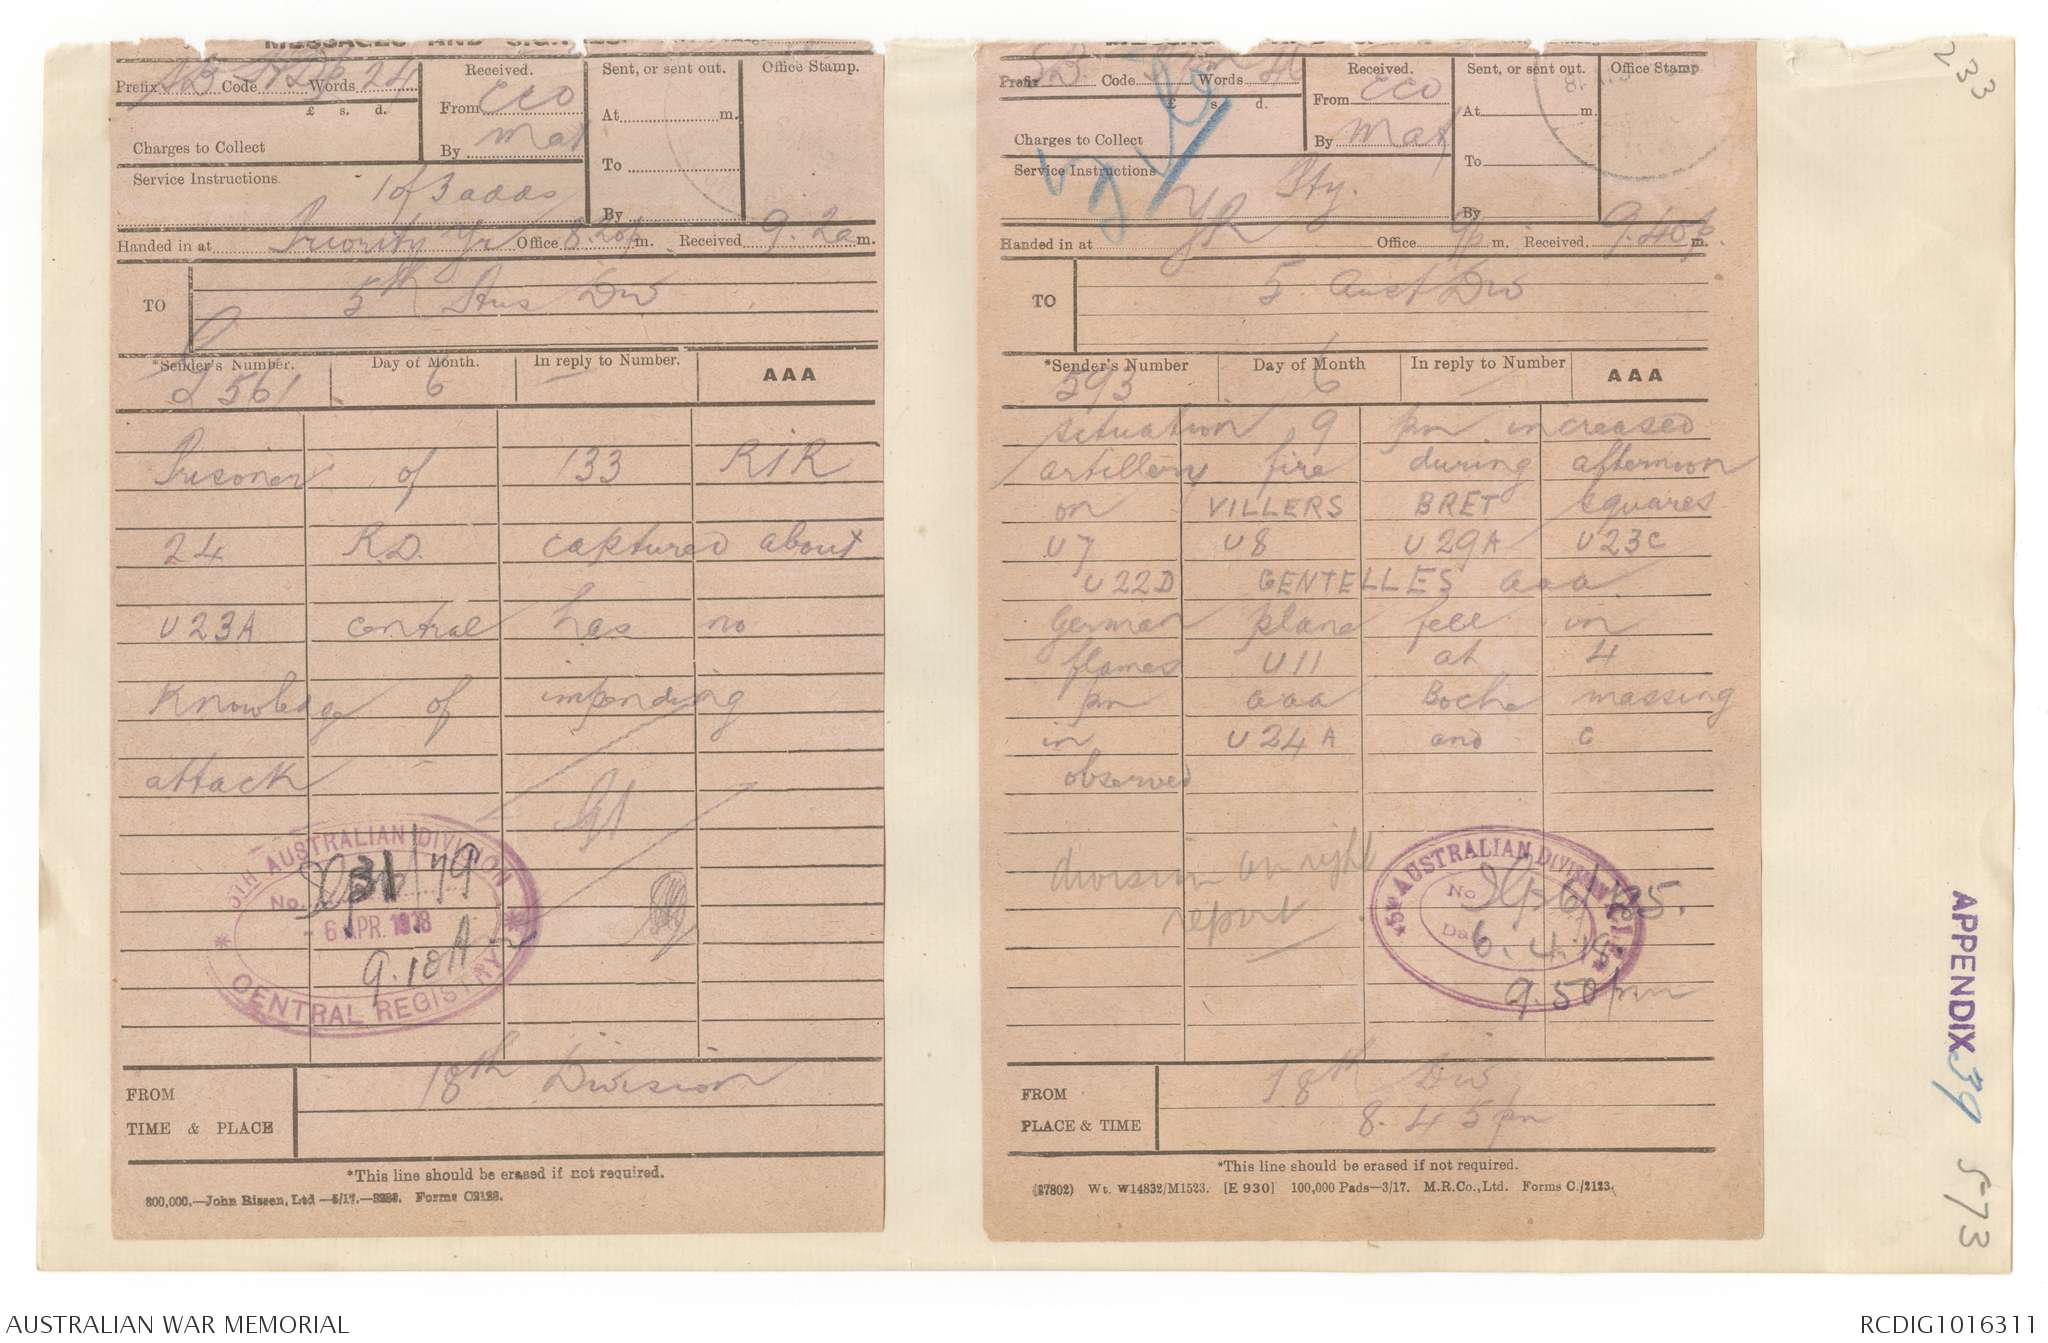 MESSAGES AND SIGNALS.
Prefix SB Code Words 24
£ s. d.
Charges to Collect
Received.
From ECO
By Max
Sent, or sent out.
At m.
To
By
Office Stamp.
Service Instructions.
1 of 3 adds
Handed in at Priority Yr Office 8.20p m. Received 9.2a m.
TO 5th Aus Div
*Sender's Number. Day of Month. In reply to Number. AAA
561 6 —
Prisoner of 133 RIR
24 R.D. captured about
U23A central has no
Knowledge of impending
attack
5TH AUSTRALIAN DIVISION
No. 31/79
- 6 APR. 1918
9.10A
CENTRAL REGISTRY
FROM 18th Division
TIME & PLACE
*This line should be erased if not required.
800,000.—John Rissen, Ltd —5/17.— Forms C2123.
Prefix SB Code Words
£ s. d.
Charges to Collect
Received.
From ECO
By Max
Sent, or sent out.
At m.
To
By
Office Stamp
Service Instructions Pty.
Handed in at YR Office 9p m. Received 9.40p. m.
TO 5 Aust Div
*Sender's Number Day of Month In reply to Number AAA
593 6 —
situation 9 pm increased
artillery fire during afternoon
on VILLERS BRET squares
U7 U8 U29A U23C
U22D GENTELLES aaa
German plane fell in
flames U11 at 4
pm aaa Boche massing
in U24A and C
observed
division on right
report
5TH AUSTRALIAN DIVISION
No.
Date 6.4.18
9.50pm
FROM 18th Div
PLACE & TIME 8.45pm
*This line should be erased if not required.
(27802) Wt. W14832/M1523. [E 930] 100,000 Pads—3/17. M.R.Co., Ltd. Forms C./2123.
233
APPENDIX 39
573
AUSTRALIAN WAR MEMORIAL
RCDIG1016311